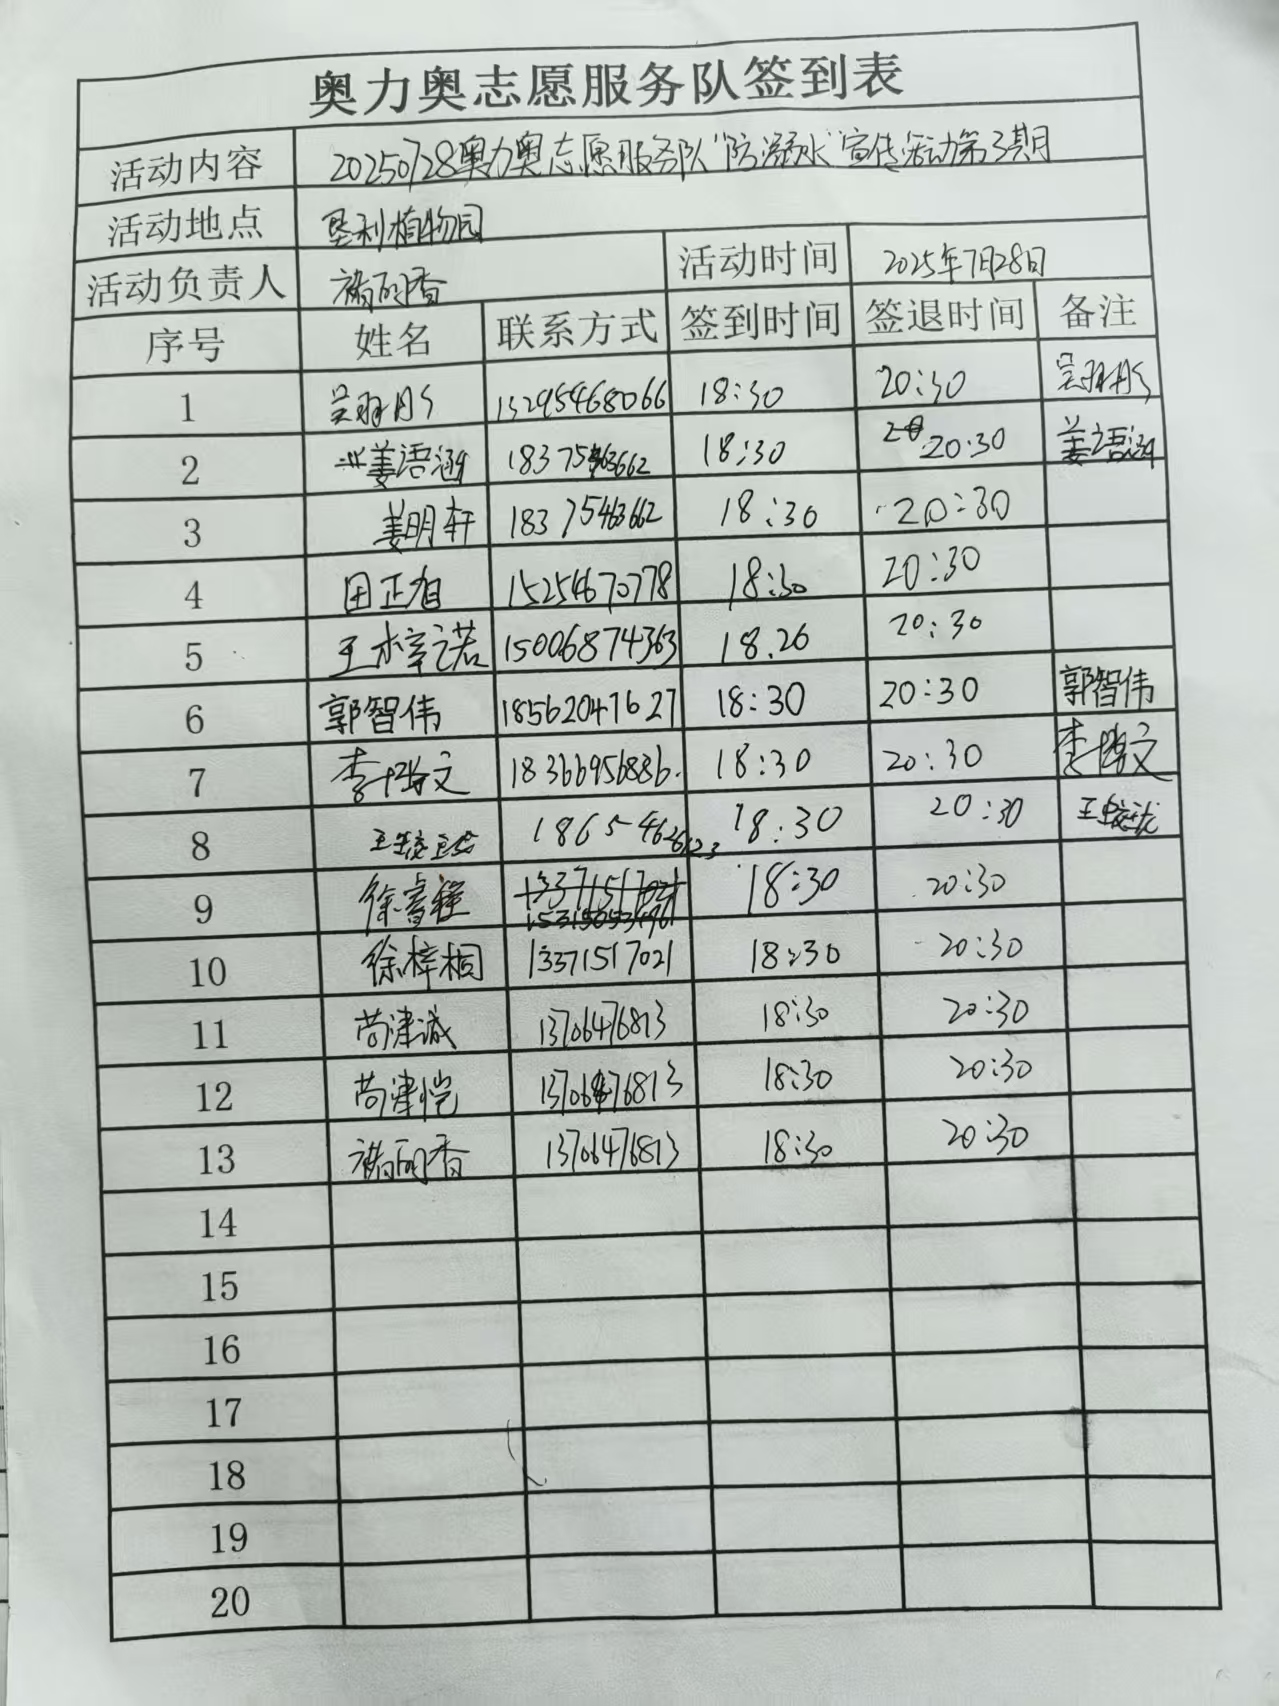 奥力奥志愿服务队签到表
活动内容 20250728奥力奥志愿服务队"防溺水"宣传活动第3期
活动地点 垦利植物园
活动负责人 活动时间 2025年7月28日
序号 姓名 联系方式 签到时间 签退时间 备注
1 吴羽彤 13295468066 18:30 20:30 吴羽彤
2 姜语涵 18375463662 18:30 20:30 姜语涵
3 姜明轩 18375463662 18:30 20:30
4 田正 15254670778 18:30 20:30
5 王梓诺 15006874363 18.26 20:30
6 郭智伟 18562047627 18:30 20:30 郭智伟
7 李文 18366956886 18:30 20:30 李文
8 王 18654626123 18:30 20:30 王
9 徐睿程 18:30 20:30
10 徐梓桐 13371517021 18:30 20:30
11 尚津诚 13706476813 18:30 20:30
12 尚津恺 13706476813 18:30 20:30
13 13706476813 18:30 20:30
14
15
16
17
18
19
20